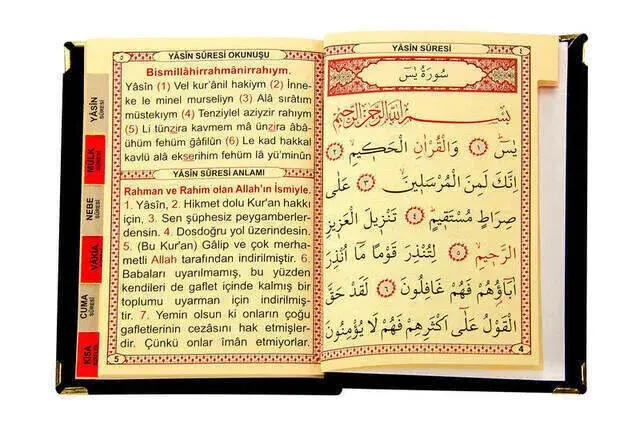 YÂSİN SÛRESİ OKUNUŞU
Bismillâhirrahmânirrahıym.
Yâsîn (1) Vel kur'ânil hakiym (2) İnne-
ke le minel murseliyn (3) Alâ sırâtım
müstekıym (4) Tenziylel aziyzir rahıym
(5) Li tünzira kavmem mâ ünzira âbâ-
ühüm fehüm ğâfilûn (6) Le kad hakkal
kavlü alâ ekserihim fehüm lâ yü'minûn
YÂSİN SÛRESİ ANLAMI
Rahman ve Rahim olan Allah'ın İsmiyle.
1. Yâsîn, 2. Hikmet dolu Kur'an hakkı
için, 3. Sen şüphesiz peygamberler-
densin. 4. Dosdoğru yol üzerindesin.
5. (Bu Kur'an) Gâlip ve çok merha-
metli Allah tarafından indirilmiştir. 6.
Babaları uyarılmamış, bu yüzden
kendileri de gaflet içinde kalmış bir
toplumu uyarman için indirilmiş-
tir. 7. Yemin olsun ki onların çoğu
gafletlerinin cezâsını hak etmişler-
dir. Çünkü onlar îmân etmiyorlar.
5
YÂSİN SÛRESİ
MÜLK SÛRESİ
NEBE SÛRESİ
VÂKIA SÛRESİ
CUMA SÛRESİ
KISA
YÂSİN SÛRESİ
٤
سُورَةُ يٰسٓ
بِسْمِ اللهِ الرَّحْمٰنِ الرَّحِيمِ
يٰسٓ ﴿١﴾ وَالْقُرْاٰنِ الْحَكِيمِ ﴿٢﴾
اِنَّكَ لَمِنَ الْمُرْسَلِينَ ﴿٣﴾ عَلٰى
صِرَاطٍ مُسْتَقِيمٍ ﴿٤﴾ تَنْزِيلَ الْعَزِيزِ
الرَّحِيمِ ﴿٥﴾ لِتُنْذِرَ قَوْمًا مَا اُنْذِرَ
اٰبَاؤُهُمْ فَهُمْ غَافِلُونَ ﴿٦﴾ لَقَدْ حَقَّ
الْقَوْلُ عَلٰى اَكْثَرِهِمْ فَهُمْ لَا يُؤْمِنُونَ
4